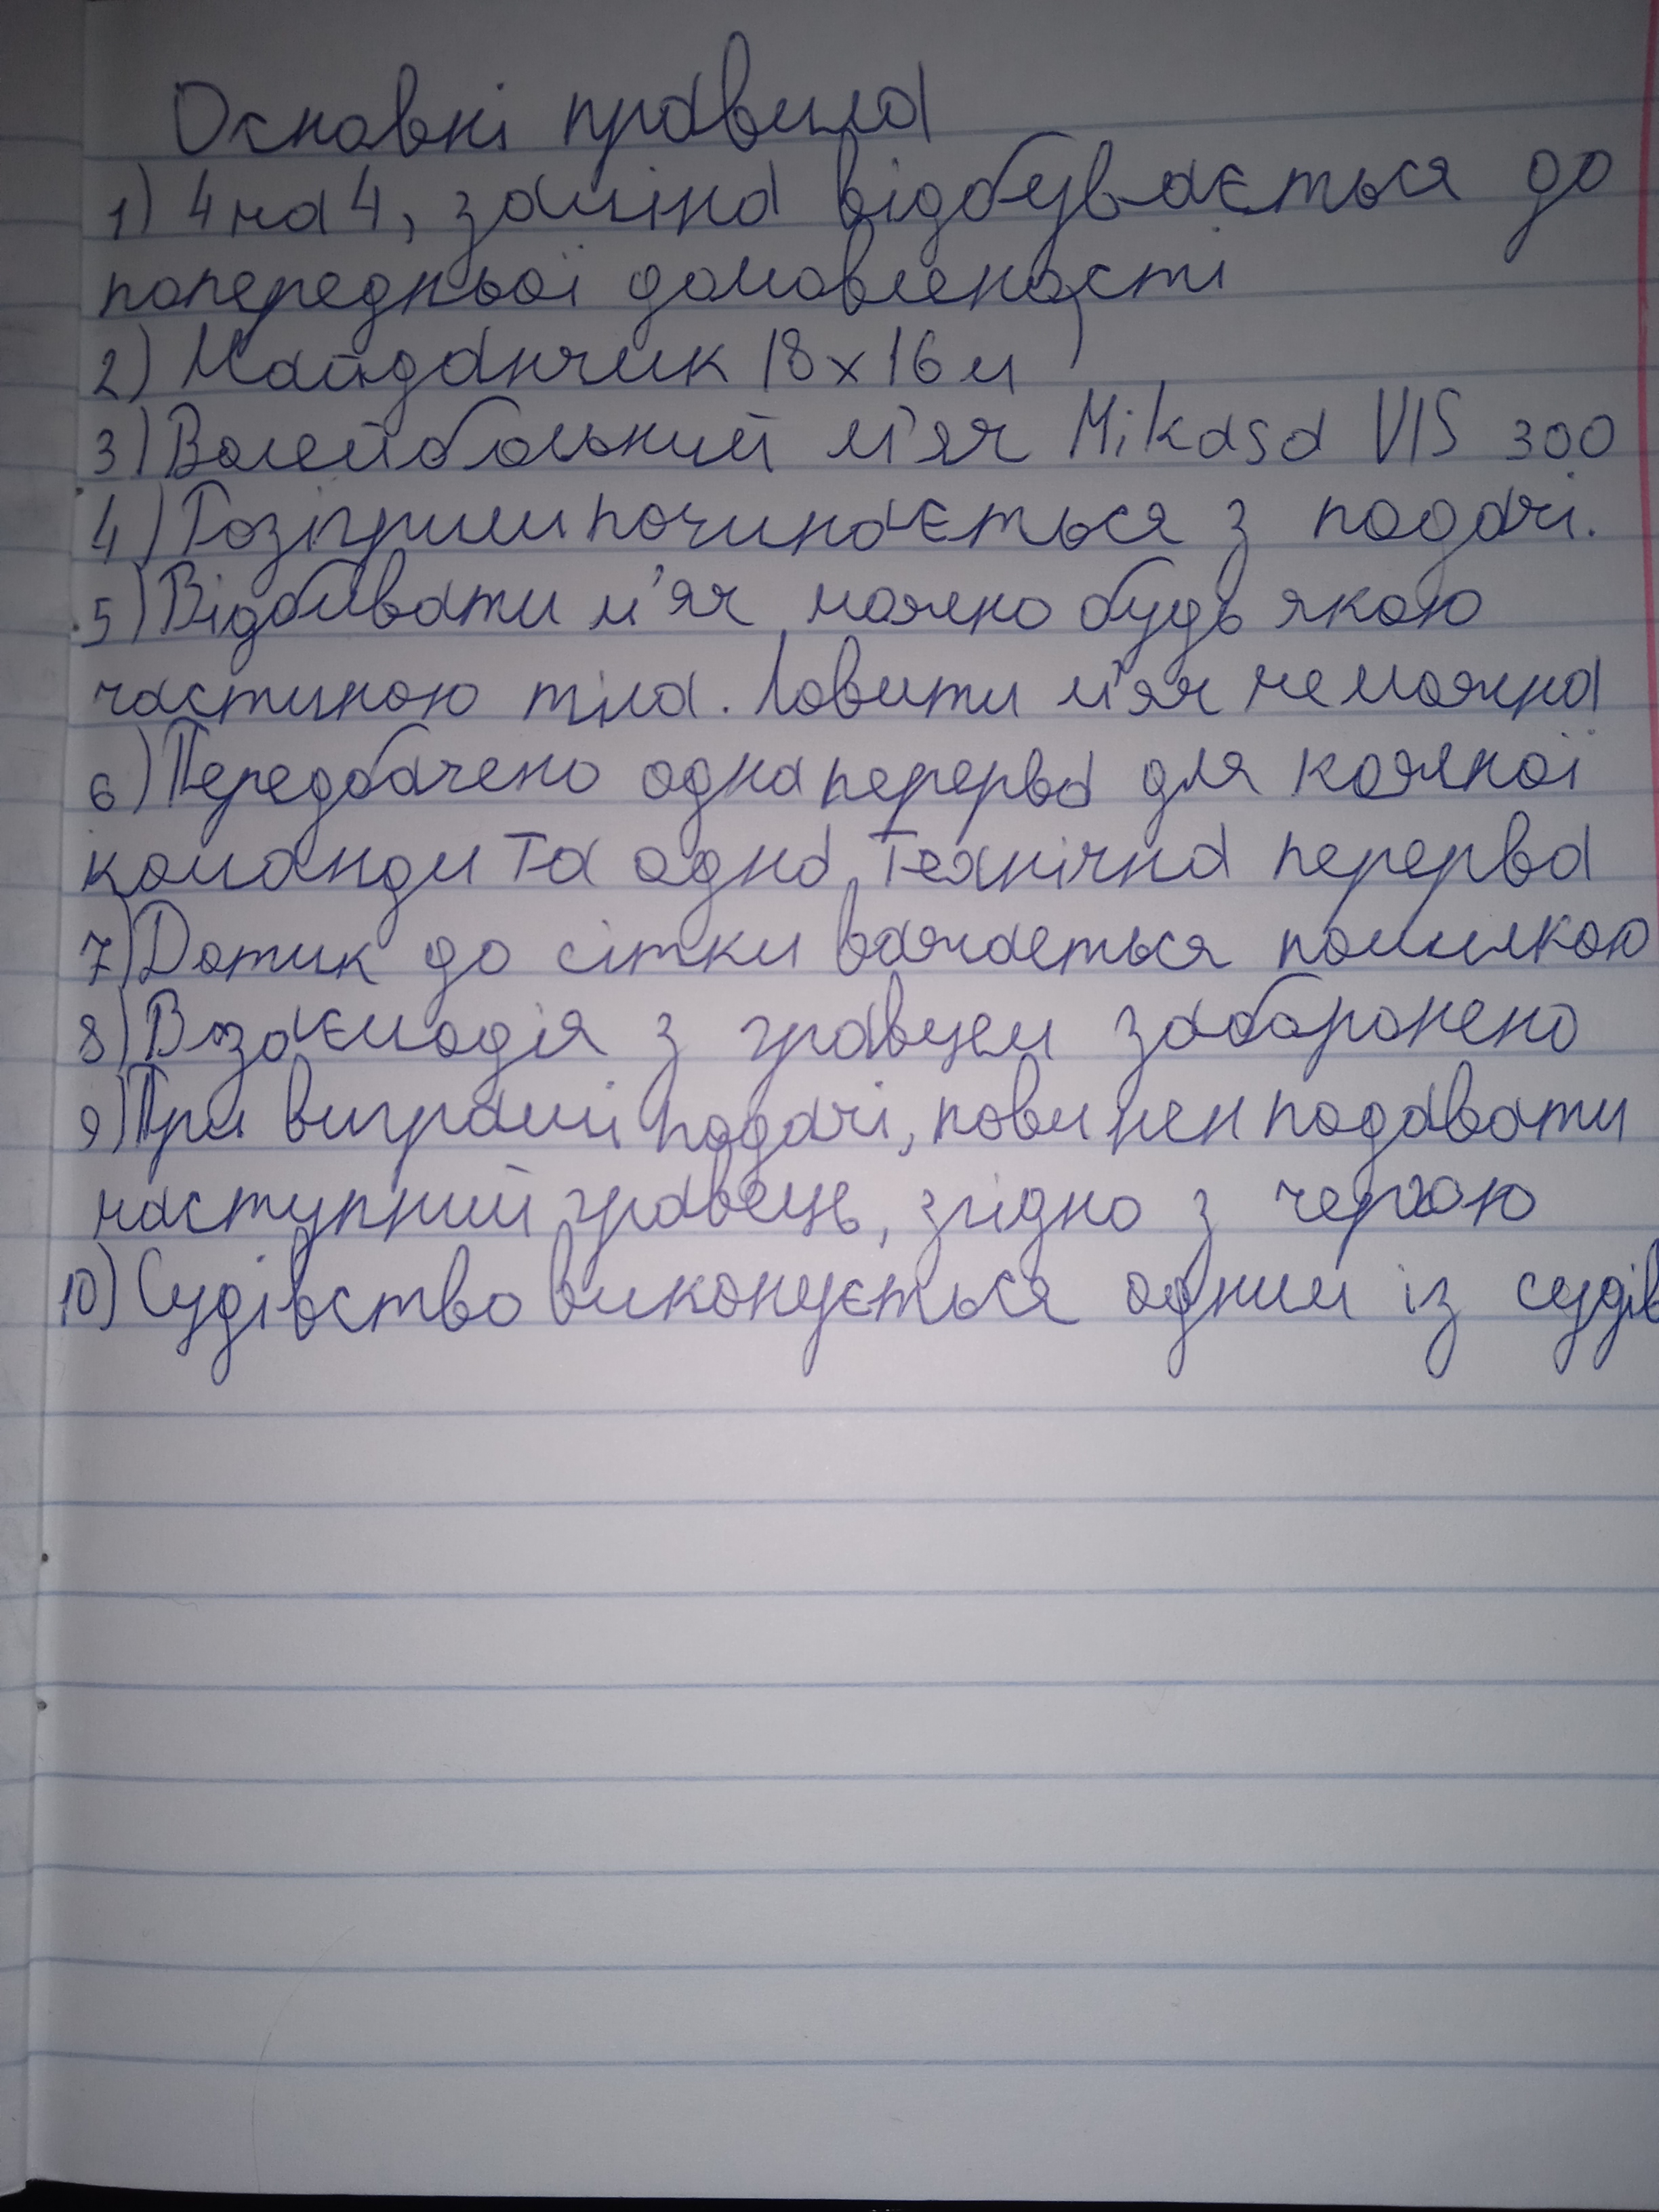 Основні правила
1) 4 на 4, заміна відбувається до
попередньої домовленості
2) Майданчик 18х16 м
3) Волейбольний м'яч Mikasa VIS 300
4) Розігриш починається з подачі.
5) Відбивати м'яч можно будь якою
частиною тіла. Ловити м'яч не можна
6) Передбачено одна перерва для кожної
команди та одна технічна перерва
7) Дотик до сітки вважається помилкою
8) Взаємодія з гравцем заборонено
9) При виграші подачі, повинен подавати
наступний гравець, згідно з чергою
10) Судівство виконується одним із судів